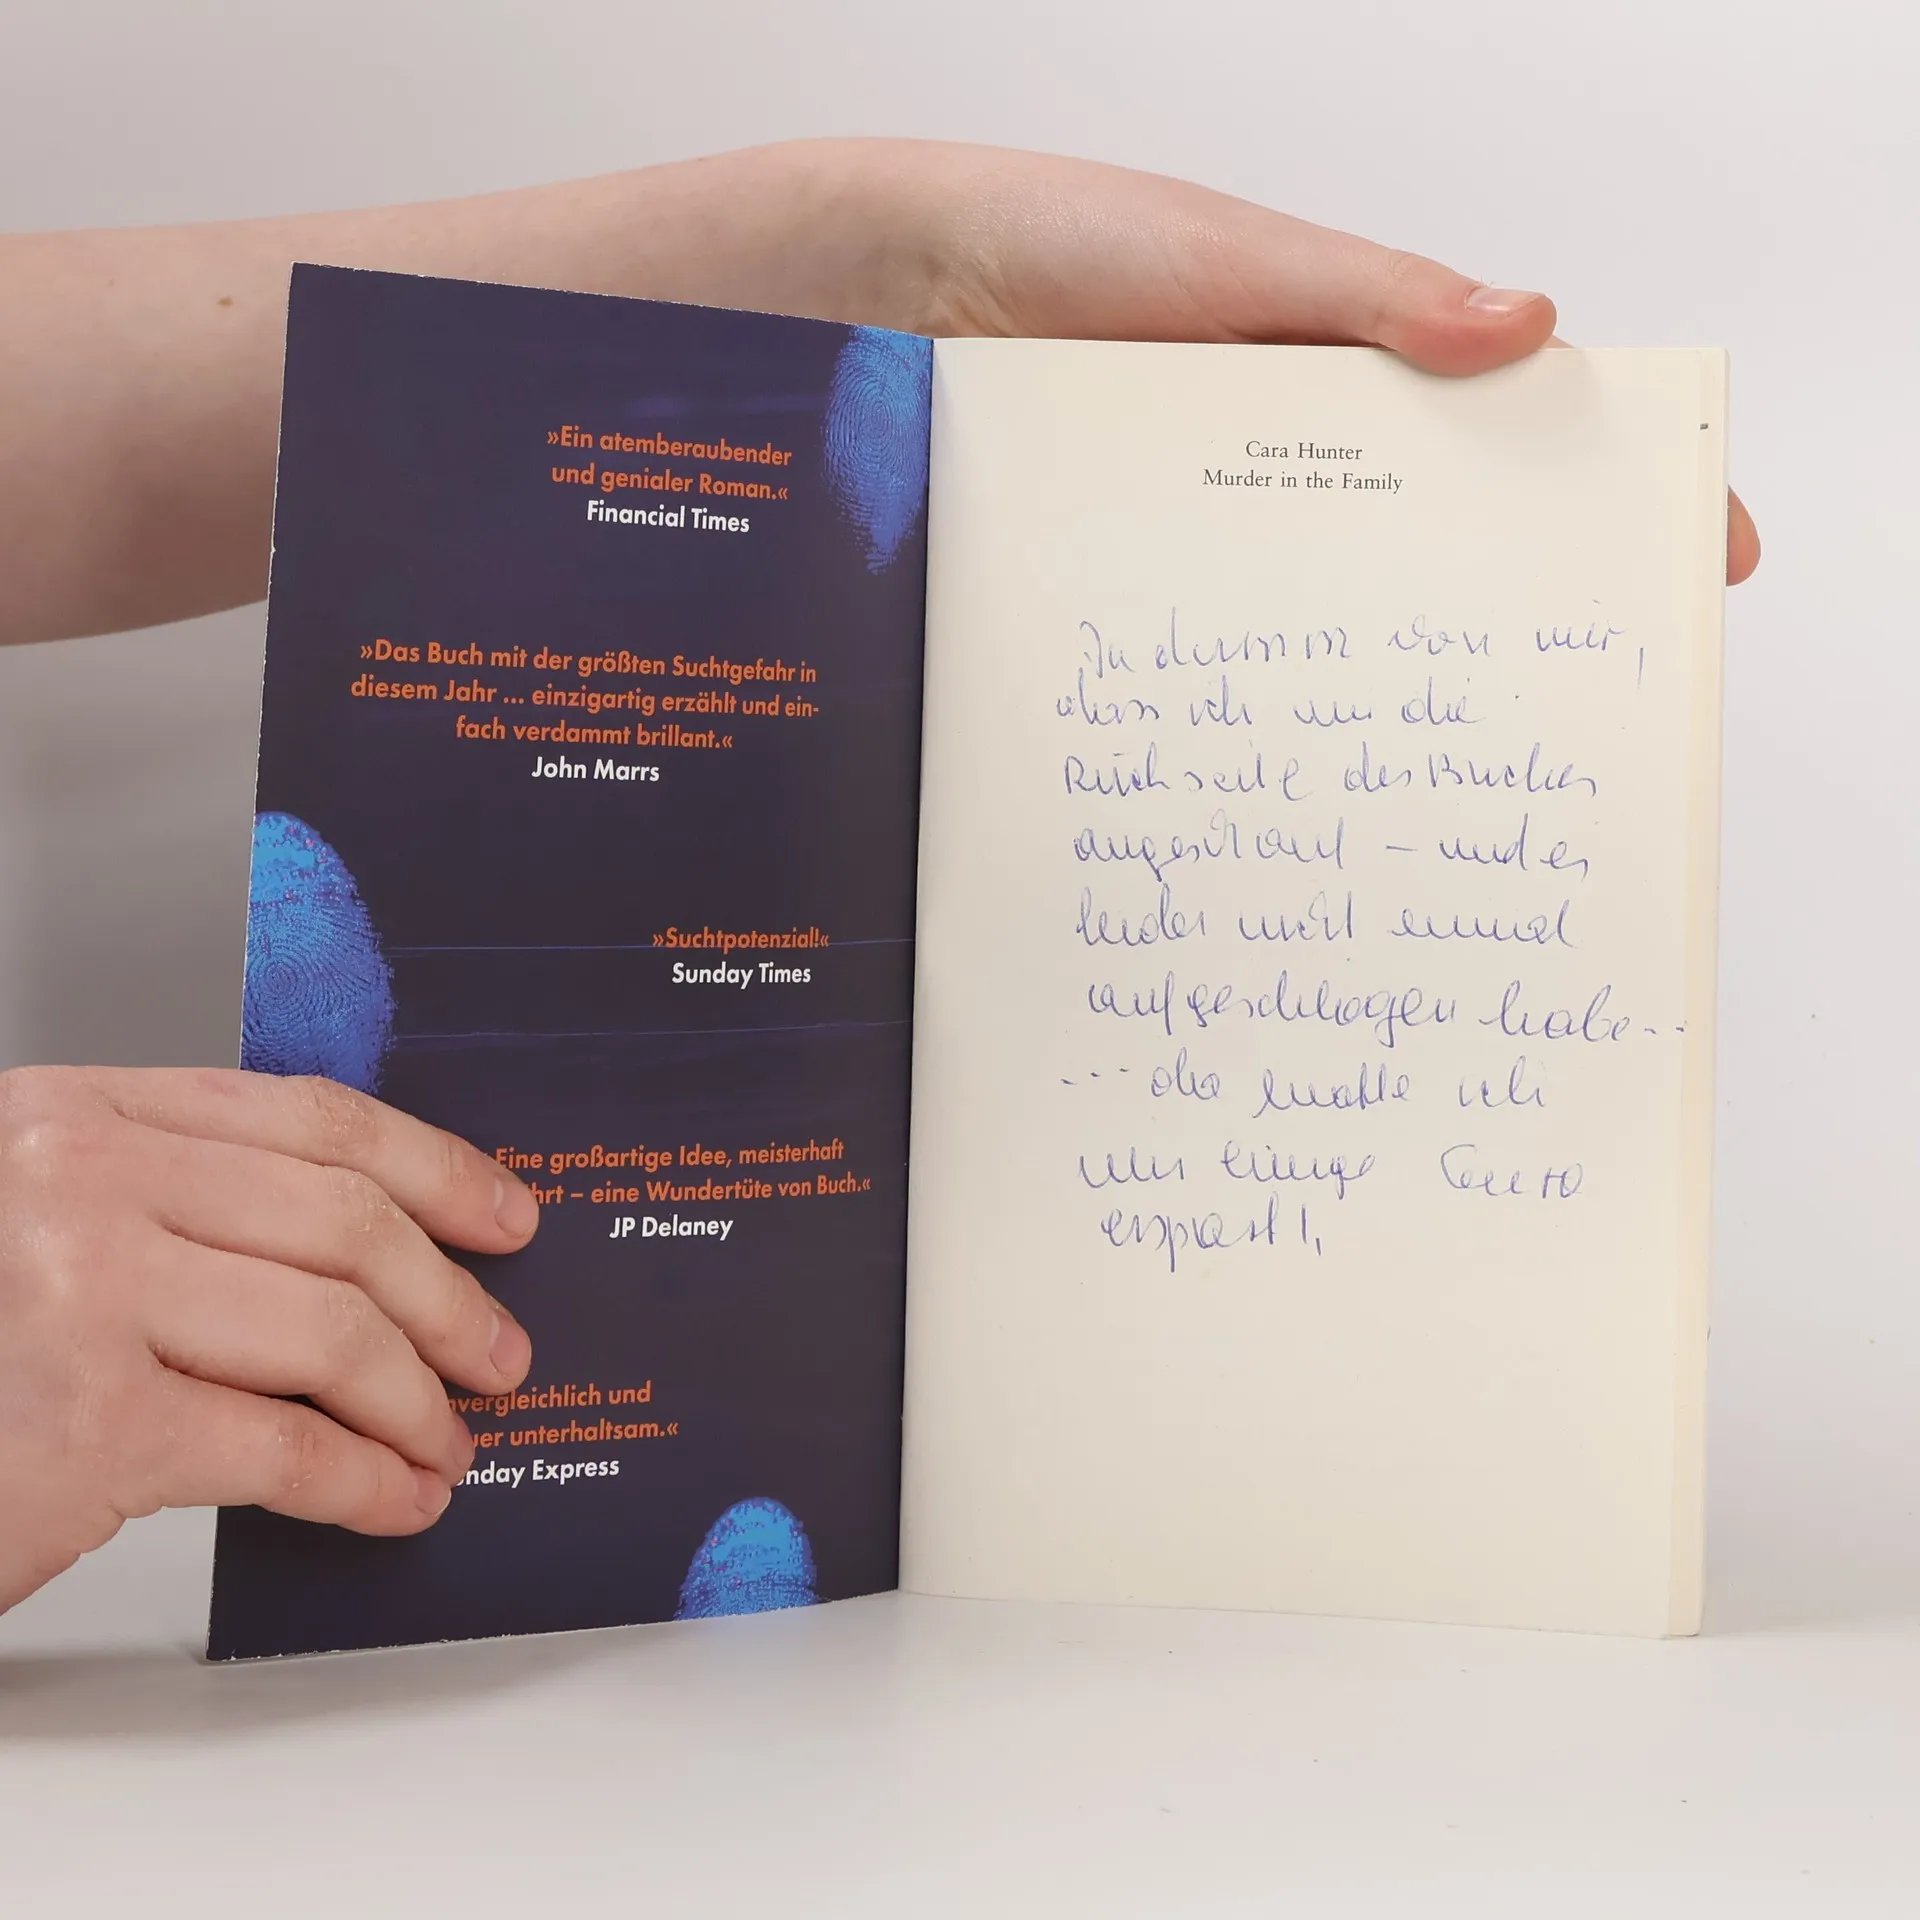 »Ein atemberaubender
und genialer Roman.«
Financial Times
»Das Buch mit der größten Suchtgefahr in
diesem Jahr ... einzigartig erzählt und ein-
fach verdammt brillant.«
John Marrs
»Suchtpotenzial!«
Sunday Times
Eine großartige Idee, meisterhaft
hrt – eine Wundertüte von Buch.«
JP Delaney
vergleichlich und
uer unterhaltsam.«
nday Express
Cara Hunter
Murder in the Family
dumm von mir,
dass ich nur die
Rückseite des Buches
angeschaut – und es
leider nicht einmal
aufgeschlagen habe...
... da hätte ich
mir einige Euro
erspart!